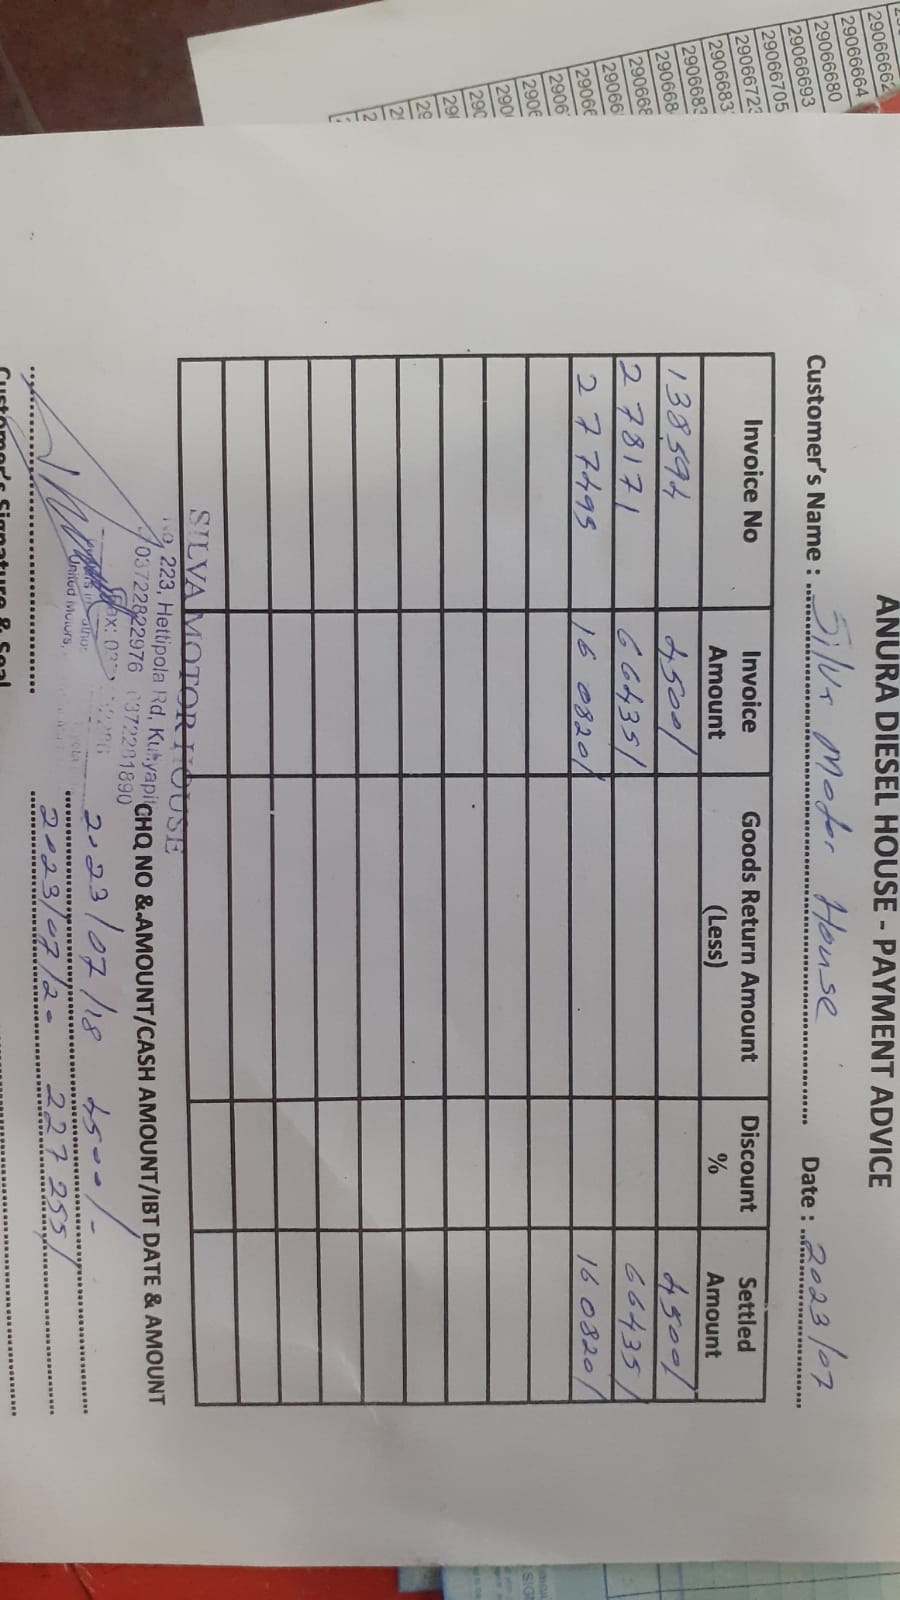 ANURA DIESEL HOUSE - PAYMENT ADVICE
Customer's Name : Silva Motor House Date : 2023/07
Invoice No Invoice Amount Goods Return Amount (Less) Discount % Settled Amount
138594 4500/ 4500/
278171 66435/ 66435/
277495 160820/ 160820/
SILVA MOTOR HOUSE
No, 223, Hettipola Rd, Kuliyapit
0372282976 0372281890
CHQ NO & AMOUNT/CASH AMOUNT/IBT DATE & AMOUNT
2023/07/18 4500/-
2023/07/20 227255/
United Motors,
Customer's Signature & Seal
29066662
29066664
29066680
29066693
29066705
2906672
2906683
2906683
290668
29066